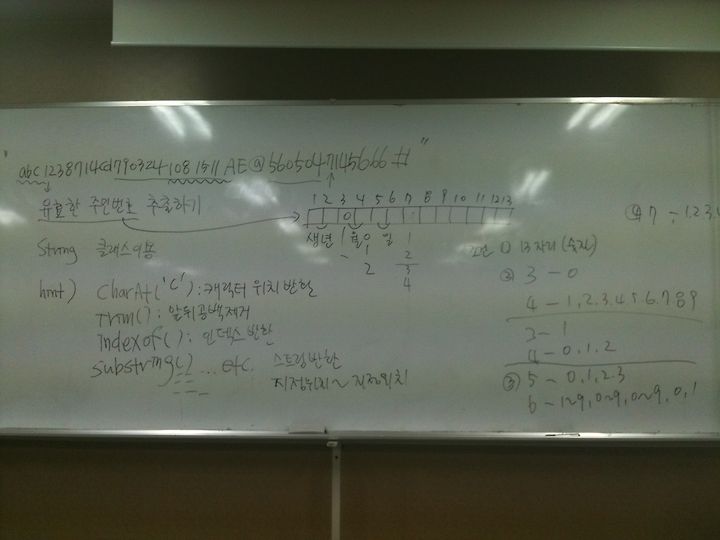 "abc1238714cd790324-1081511AE@5605047145666#"
유효한 주민번호 추출하기
1 2 3 4 5 6 7 8 9 10 11 12 13
0
생년 월 일
1 0 1
1 2
2 3
4
String 클래스이용
hint) CharAt('c') : 캐릭터 위치 반환
Trim() : 앞뒤공백제거
Indexof() : 인덱스 반환
substring() ... etc. 스트링반환
지정위치~ 지정위치
조건 ① 13자리 (숫자)
② 3 - 0
4 - 1,2,3,4,5,6,7,8,9
3 - 1
4 - 0,1,2
③ 5 - 0,1,2,3
6 - 1~9, 0~9, 0~9, 0,1
④ 7 - 1,2,3,4